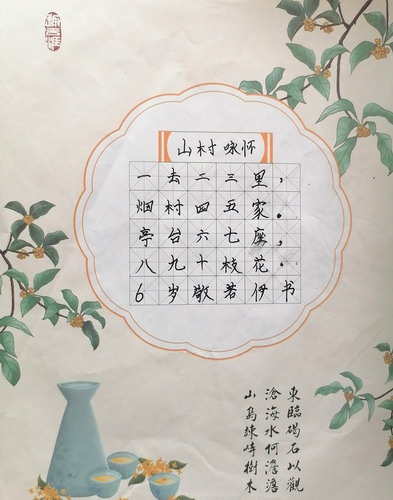 山村咏怀
一去二三里，
烟村四五家。
亭台六七座，
八九十枝花。
6岁敬若伊书
東臨碣石以觀
滄海水何澹澹
山島竦峙樹木